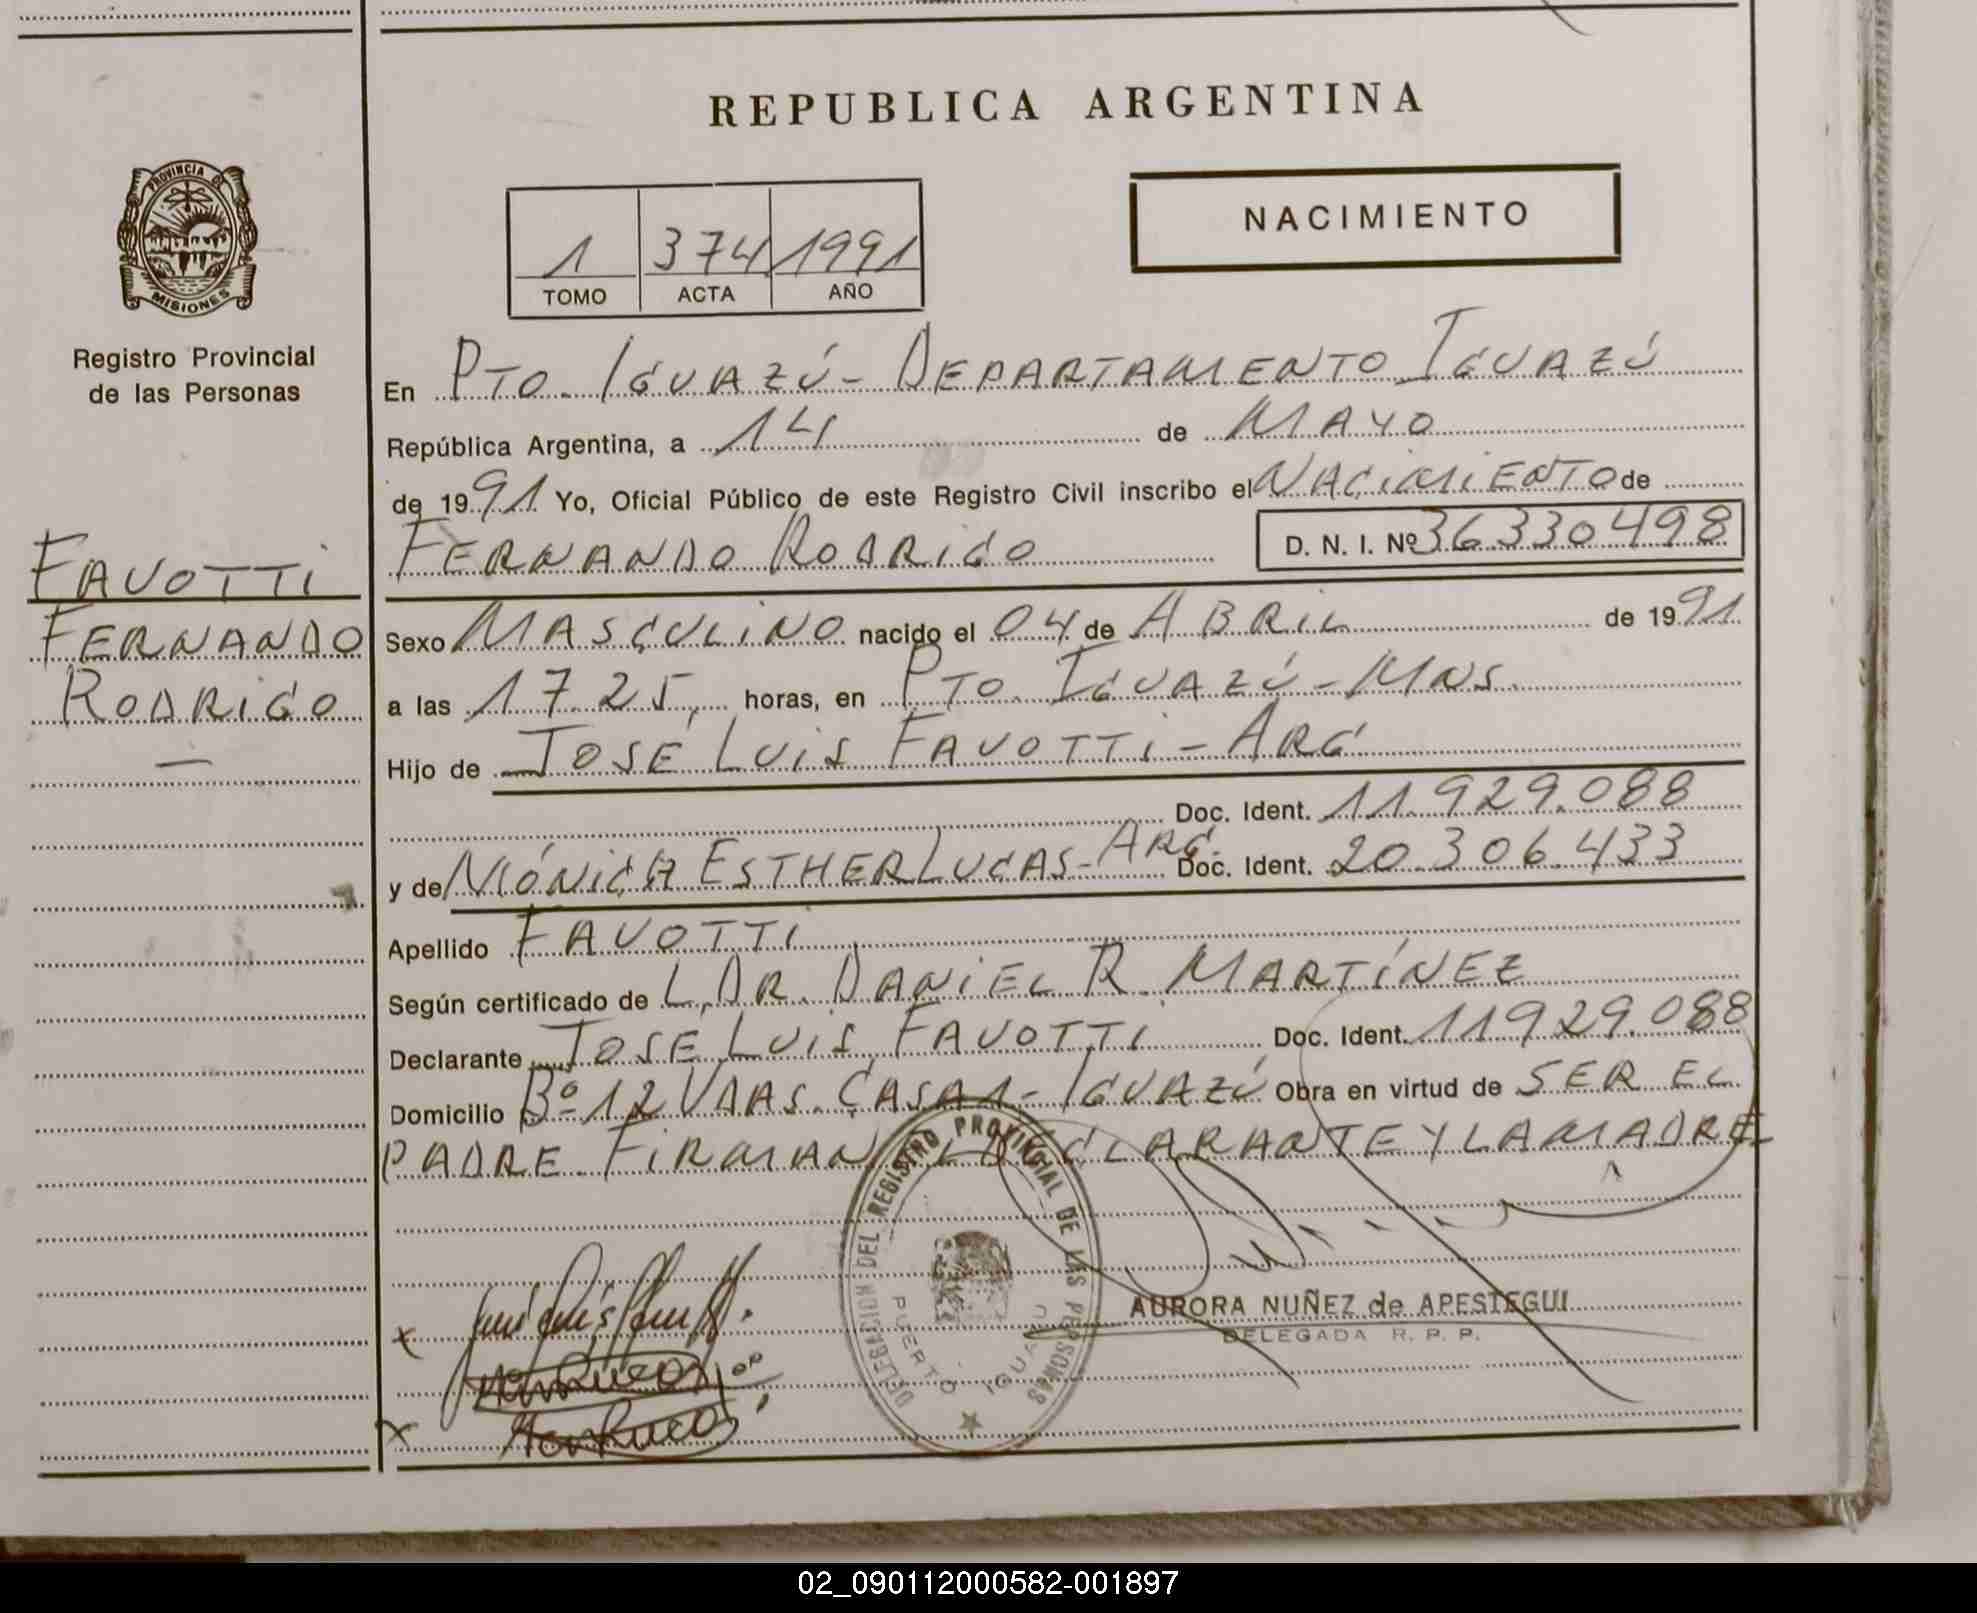 REPUBLICA ARGENTINA
PROVINCIA DE
MISIONES
Registro Provincial
de las Personas
1 374 1991
TOMO ACTA AÑO
NACIMIENTO
En PTO. IGUAZÚ - DEPARTAMENTO IGUAZÚ
República Argentina, a 14 de MAYO
de 1991 Yo, Oficial Público de este Registro Civil inscribo el NACIMIENTO de
FERNANDO RODRIGO D. N. I. Nº 36330498
FAVOTTI
FERNANDO
RODRIGO
—
Sexo MASCULINO nacido el 04 de ABRIL de 1991
a las 17.25, horas, en PTO. IGUAZÚ - MNS.
Hijo de JOSÉ LUIS FAVOTTI - ARG
Doc. Ident. 11.929.088
y de MÓNICA ESTHER LUCAS - ARG. Doc. Ident. 20.306.433
Apellido FAVOTTI
Según certificado de L. DR. DANIEL R. MARTÍNEZ
Declarante JOSE LUIS FAVOTTI Doc. Ident. 11929.088
Domicilio Bº 12 VDAS. CASA 1 - IGUAZÚ Obra en virtud de SER EL
PADRE. FIRMAN DECLARANTE Y LA MADRE
DELEGACION DEL REGISTRO PROVINCIAL DE LAS PERSONAS
PUERTO IGUAZU
AURORA NUÑEZ de APESTEGUI
DELEGADA R. P. P.
x
x
02_090112000582-001897